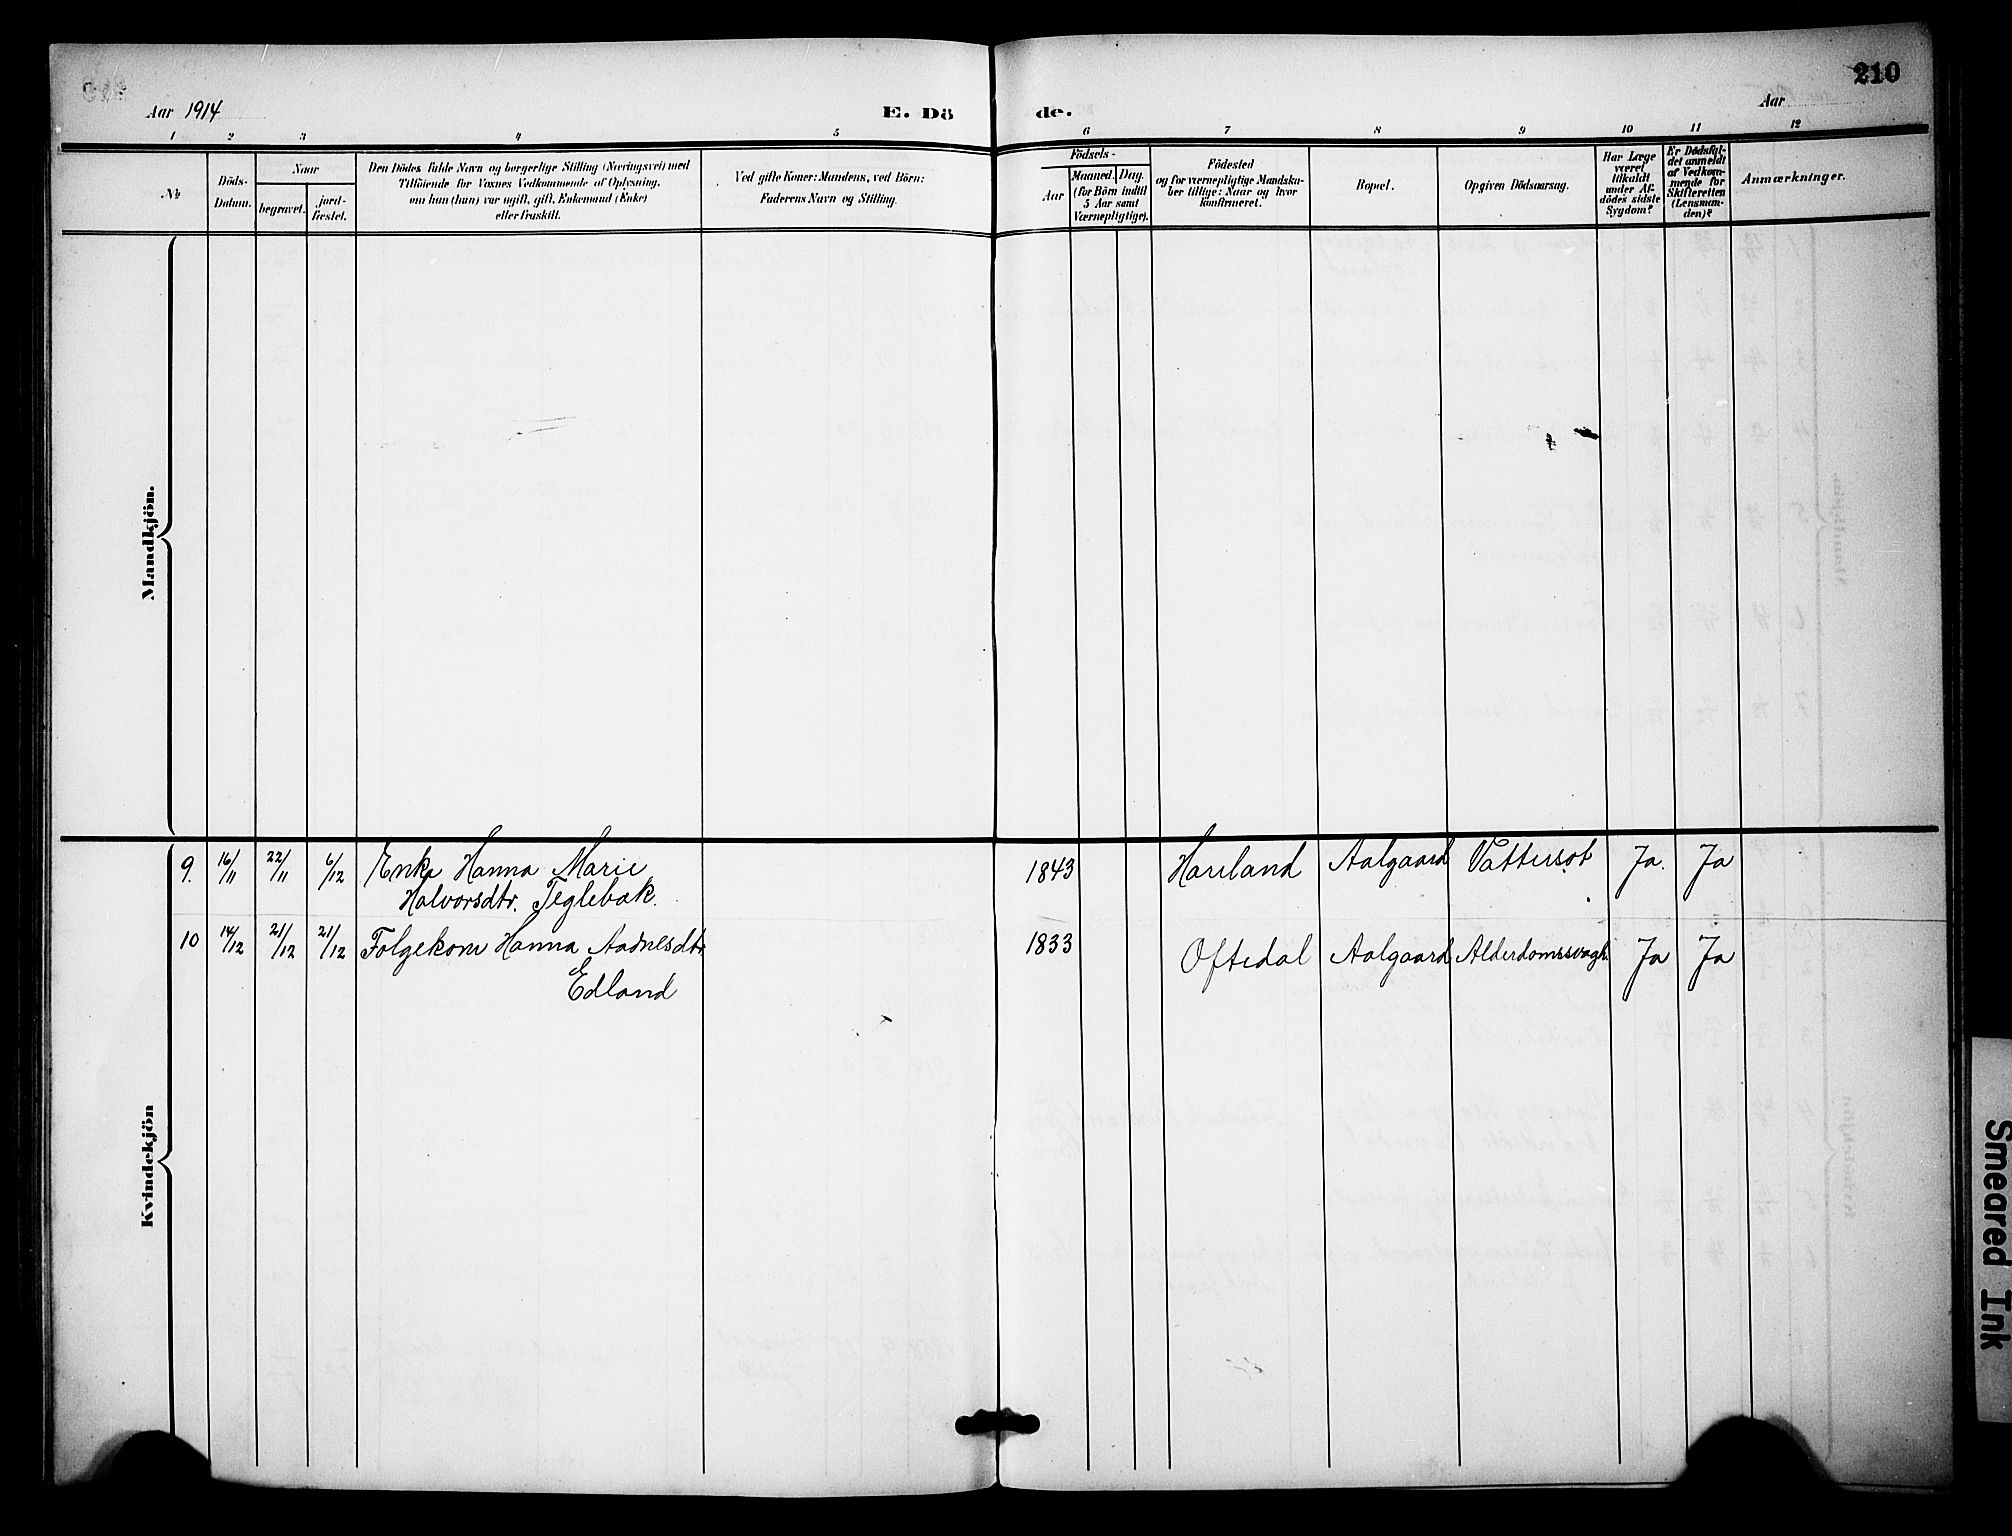 210
Aar 1914
E. Dö de.
Aar
1 2 3 4 5 6 7 8 9 10 11 12
No
Döds-
Datum.
Naar
begravet.
jord-
fæstet.
Den Dödes fulde Navn og borgerlige Stilling (Næringsvei) med
Tilföiende for Voxnes Vedkommende af Oplysning,
om han (hun) var ugift, gift, Enkemand (Enke)
eller fraskilt.
Ved gifte Koner: Mandens, ved Börn:
Faderens Navn og Stilling.
Födsels-
Aar
Maaned. Dag.
(for Börn indtil
5 Aar samt
Værnepligtige).
Födested
og for værnepligtige Mandska-
ber tillige: Naar og hvor
konfirmeret.
Bopæl.
Opgiven Dödsaarsag.
Har Læge
været
tilkaldt
under Af-
dödes sidste
Sygdom?
Er Dödsfal-
det anmeldt
af Vedkom-
mende for
Skifteretten
(Lensman-
den)?
Anmærkninger.
Mandkjön.
Kvindekjön
9. 16/11 22/11 6/12 Enke Hanna Marie 1843 Haaland Aalgaard Vattersot Ja. Ja
Halvorsdtr. Teglebak.
10 14/12 21/12 21/12 Folgekone Hanna Aadnesdtr 1833 Oftedal Aalgaard Alderdomssvagh. Ja Ja
Edland
Smeared Ink